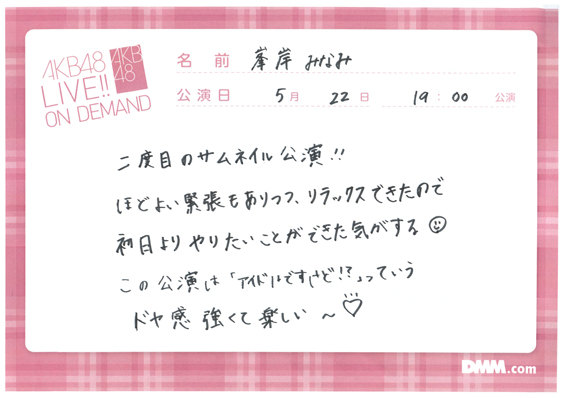 AKB48
LIVE!!
ON DEMAND
AKB
48
名前 峯岸みなみ
公演日 5月 22日 19:00 公演
二度目のサムネイル公演!!
ほどよい緊張もありつつ、リラックスできたので
初日よりやりたいことができた気がする
この公演は「アイドルですけど!?」っていう
ドヤ感強くて楽しい〜♡
DMM.com